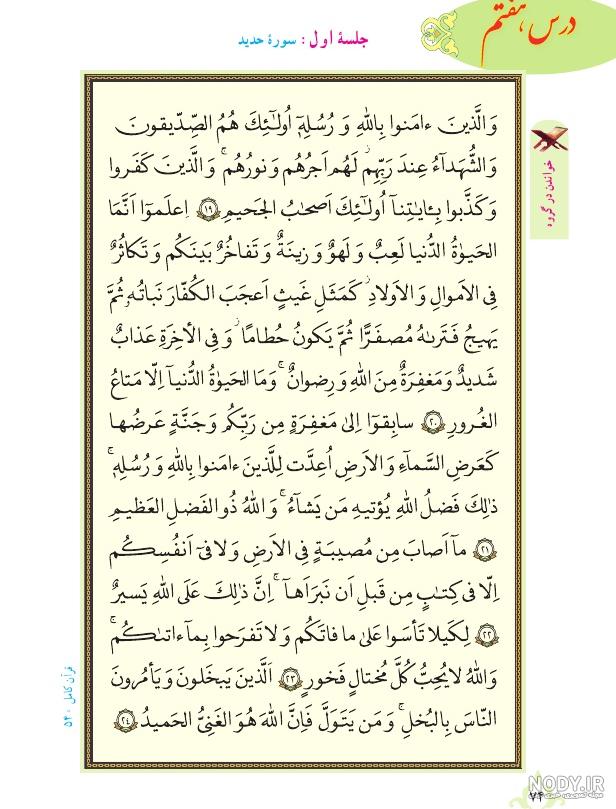 درس هفتم
جلسهٔ اول : سورهٔ حدید
خواندن در گروه
وَالَّذینَ ءامَنوا بِاللهِ وَ رُسُلِهٖٓ اُولٰٓئِكَ هُمُ الصِّدّیقونَ
وَالشُّهَدآءُ عِندَ رَبِّهِم ۖ لَهُم اَجرُهُم وَ نورُهُم ۚ وَالَّذینَ كَفَروا
وَ كَذَّبوا بِـٔایٰتِنآ اُولٰٓئِكَ اَصحٰبُ الجَحیمِ ﴿١٩﴾ اِعلَموٓا اَنَّمَا
الحَیوٰةُ الدُّنیا لَعِبٌ وَ لَهوٌ وَ زینَةٌ وَ تَفاخُرٌ بَینَكُم وَ تَكاثُرٌ
فِی الاَموالِ وَ الاَولادِ ۖ كَمَثَلِ غَیثٍ اَعجَبَ الكُفّارَ نَباتُهٗ ثُمَّ
یَهیجُ فَتَرىٰهُ مُصفَرًّا ثُمَّ یَكونُ حُطامًا ۖ وَ فِی الاٰخِرَةِ عَذابٌ
شَدیدٌ وَ مَغفِرَةٌ مِنَ اللهِ وَ رِضوانٌ ۚ وَ مَا الحَیوٰةُ الدُّنیآ اِلّا مَتاعُ
الغُرورِ ﴿٢٠﴾ سابِقوٓا اِلىٰ مَغفِرَةٍ مِن رَبِّكُم وَ جَنَّةٍ عَرضُها
كَعَرضِ السَّمآءِ وَ الاَرضِ اُعِدَّت لِلَّذینَ ءامَنوا بِاللهِ وَ رُسُلِهٖ ۚ
ذٰلِكَ فَضلُ اللهِ یُؤتیهِ مَن یَشآءُ ۚ وَ اللهُ ذُو الفَضلِ العَظیمِ
﴿٢١﴾ مآ اَصابَ مِن مُصیبَةٍ فِی الاَرضِ وَ لا فیٓ اَنفُسِكُم
اِلّا فی كِتٰبٍ مِن قَبلِ اَن نَبرَاَهآ ۚ اِنَّ ذٰلِكَ عَلَى اللهِ یَسیرٌ
﴿٢٢﴾ لِكَیلا تَأسَوا عَلىٰ ما فاتَكُم وَ لا تَفرَحوا بِمآ ءاتىٰكُم ۗ
وَ اللهُ لا یُحِبُّ كُلَّ مُختالٍ فَخورٍ ﴿٢٣﴾ اَلَّذینَ یَبخَلونَ وَ یَأمُرونَ
النّاسَ بِالبُخلِ ۗ وَ مَن یَتَوَلَّ فَاِنَّ اللهَ هُوَ الغَنِیُّ الحَمیدُ ﴿٢٤﴾
قرآن کامل ٥٤٠
٧٤
NODY.IR